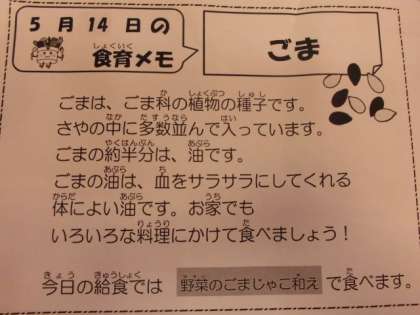 5月14日の
食育メモ
ごま
ごまは、ごま科の植物の種子です。
さやの中に多数並んで入っています。
ごまの約半分は、油です。
ごまの油は、血をサラサラにしてくれる
体によい油です。お家でも
いろいろな料理にかけて食べましょう！
今日の給食では 野菜のごまじゃこ和え で食べます。